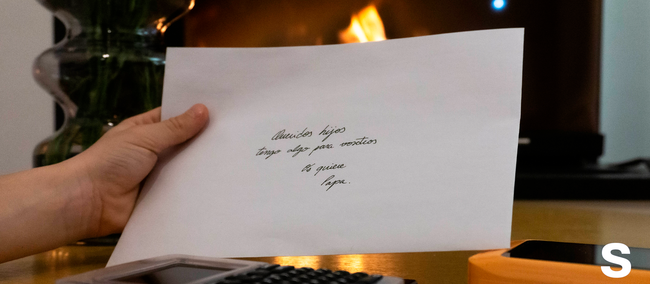 Queridos hijos
tengo algo para vosotros
Os quiere
Papa.
S